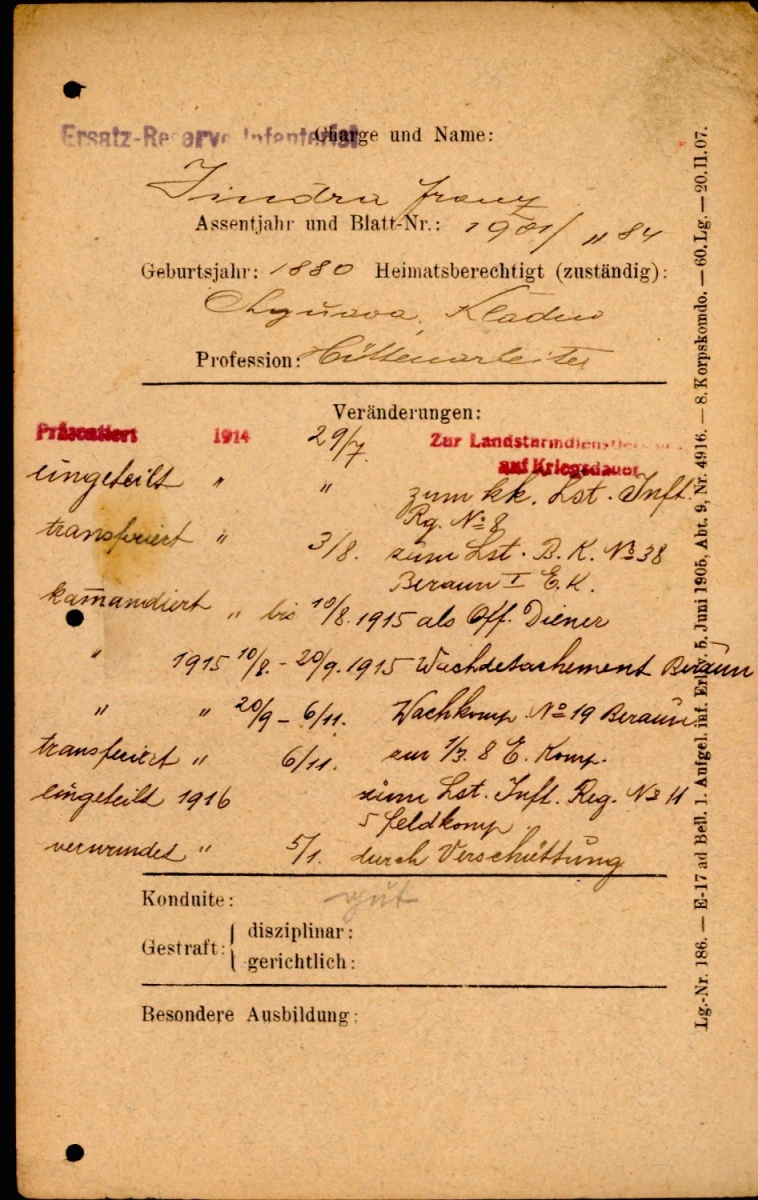 Ersatz-Reserve Infanterist
Charge und Name:
Jindra Franz
Assentjahr und Blatt-Nr.: 1901/ 84
Geburtsjahr: 1880 Heimatsberechtigt (zuständig):
Kladno
Profession: Hüttenarbeiter
Veränderungen:
Präsentiert 1914 29/7. Zur Landsturmdienstleistung
auf Kriegsdauer
eingeteilt " " zum kk. Lst. Inft.
Rg. No 8
transferiert " 3/8. zum Lst. B. K. No 38
Beraun I E. K.
komandiert " bis 10/8. 1915 als Off. Diener
" 1915 10/8. - 20/9. 1915 Wachdetachement Beraun
" " 20/9 - 6/11. Wachkomp. No 19 Beraun
transferiert " 6/11. zur 1/3. 8 E. Komp.
eingeteilt 1916 zum Lst. Inft. Reg. No 11
5 Feldkomp.
verwundet " 5/1. durch Verschüttung
Konduite: gut
Gestraft: disziplinar:
gerichtlich:
Besondere Ausbildung:
Lg.-Nr. 186. — E-17 ad Beil. 1. Anfgel. inf. Erl. v. 5. Juni 1905, Abt. 9, Nr. 4916. — 8. Korpskomdo. — 60. Lg. — 20. II. 07.